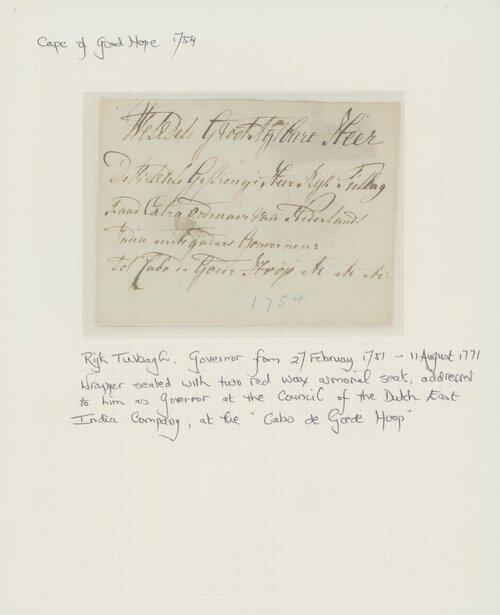 Cape of Good Hope 1754
Wel Edele Groot Agtbare Heer
De Wel Edele Gestrenge Heer Ryk Tulbag
Raad Extra Ordinair van Nederlands
India mitsgaders Gouverneur
tot Cabo de Goede Hoop
1754
Rijk Tulbagh. Governor from 27 February 1751 – 11 August 1771
Wrapper sealed with two red wax armorial seals, addressed
to him as Governor at the Council of the Dutch East
India Company, at the "Cabo de Goede Hoop"